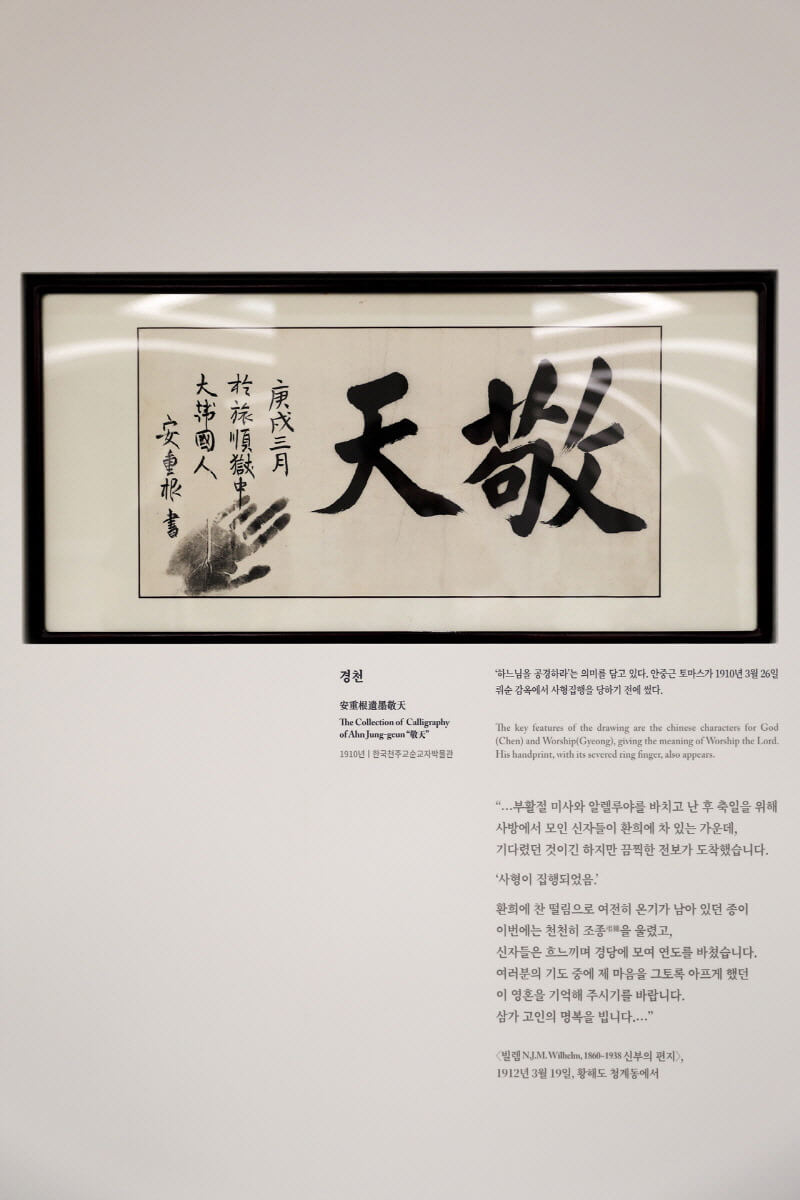 敬天
庚戌三月
於旅順獄中
大韓國人
安重根 書
경천
安重根遺墨敬天
The Collection of Calligraphy
of Ahn Jung-geun “敬天”
1910년 | 한국천주교순교자박물관
‘하느님을 공경하라’는 의미를 담고 있다. 안중근 토마스가 1910년 3월 26일
뤼순 감옥에서 사형집행을 당하기 전에 썼다.
The key features of the drawing are the chinese characters for God
(Chen) and Worship(Gyeong), giving the meaning of Worship the Lord.
His handprint, with its severed ring finger, also appears.
“…부활절 미사와 알렐루야를 바치고 난 후 축일을 위해
사방에서 모인 신자들이 환희에 차 있는 가운데,
기다렸던 것이긴 하지만 끔찍한 전보가 도착했습니다.
‘사형이 집행되었음.’
환희에 찬 떨림으로 여전히 온기가 남아 있던 종이
이번에는 천천히 조종弔鐘을 울렸고,
신자들은 흐느끼며 경당에 모여 연도를 바쳤습니다.
여러분의 기도 중에 제 마음을 그토록 아프게 했던
이 영혼을 기억해 주시기를 바랍니다.
삼가 고인의 명복을 빕니다.…”
〈빌렘 N.J.M. Wilhelm, 1860-1938 신부의 편지〉,
1912년 3월 19일, 황해도 청계동에서